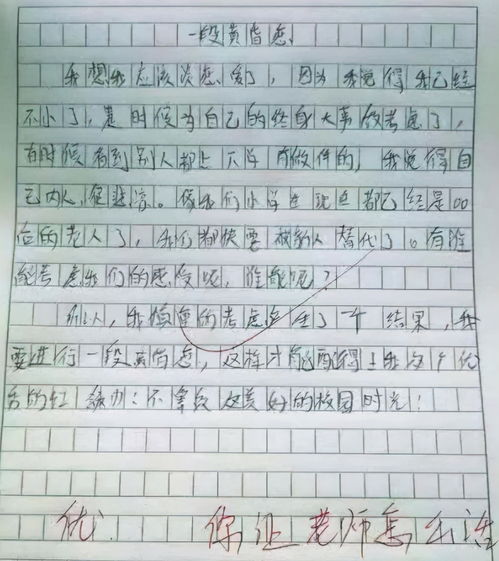 一段黄昏恋
我想我应该谈恋爱了，因为我觉得我已经
不小了，是时候为自己的终身大事做考虑了，
有时候看到别人都上下学有做伴的，我觉得自
己内人很悲凉。像我们小学生现在都已经是00
后的老人了，我们都快要被新人替代了。有谁
能考虑我们的感受呢，谁能呢？
所以，我慎重的考虑这生了一个结果，我
要进行一段黄昏恋，这样才能配得上我这个优
秀的红领巾！不辜负这美好的校园时光！
优 你让老师怎么活